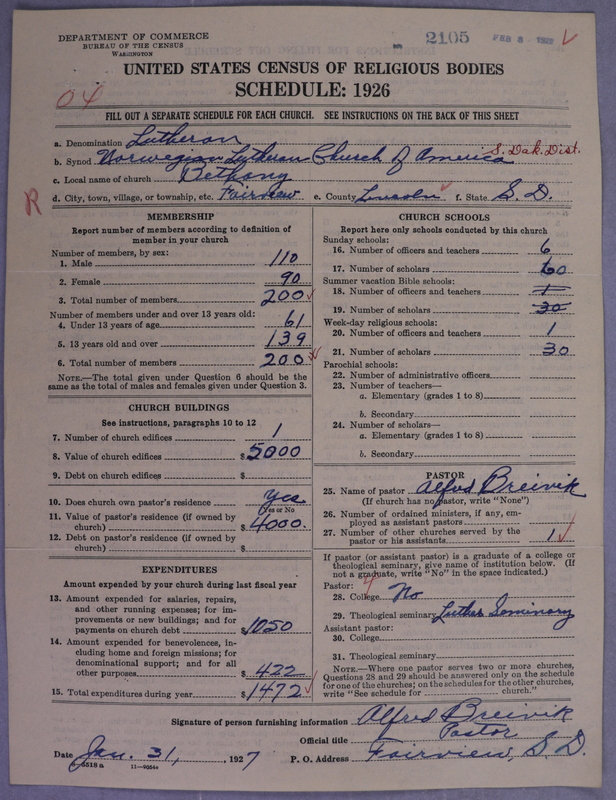 DEPARTMENT OF COMMERCE
BUREAU OF THE CENSUS
WASHINGTON
2105
FEB 8 - 192
UNITED STATES CENSUS OF RELIGIOUS BODIES
SCHEDULE: 1926
04
FILL OUT A SEPARATE SCHEDULE FOR EACH CHURCH. SEE INSTRUCTIONS ON THE BACK OF THIS SHEET
a. Denomination Lutheran
b. Synod Norwegian Lutheran Church of America S. Dak. Dist.
c. Local name of church Bethany
d. City, town, village, or township, etc. Fairview e. County Lincoln f. State S. D.
R
MEMBERSHIP
Report number of members according to definition of
member in your church
Number of members, by sex:
1. Male 110
2. Female 90
3. Total number of members 200
Number of members under and over 13 years old:
4. Under 13 years of age 61
5. 13 years old and over 139
6. Total number of members 200
NOTE.—The total given under Question 6 should be the
same as the total of males and females given under Question 3.
CHURCH BUILDINGS
See instructions, paragraphs 10 to 12
7. Number of church edifices 1
8. Value of church edifices $ 5000
9. Debt on church edifices $
10. Does church own pastor's residence Yes
Yes or No
11. Value of pastor's residence (if owned by
church) $ 4000.
12. Debt on pastor's residence (if owned by
church) $
EXPENDITURES
Amount expended by your church during last fiscal year
13. Amount expended for salaries, repairs,
and other running expenses; for im-
provements or new buildings; and for
payments on church debt $ 1050
14. Amount expended for benevolences, in-
cluding home and foreign missions; for
denominational support; and for all
other purposes $ 422
15. Total expenditures during year $ 1472
CHURCH SCHOOLS
Report here only schools conducted by this church
Sunday schools:
16. Number of officers and teachers 6
17. Number of scholars 60
Summer vacation Bible schools:
18. Number of officers and teachers 1
19. Number of scholars 30
Week-day religious schools:
20. Number of officers and teachers 1
21. Number of scholars 30
Parochial schools:
22. Number of administrative officers
23. Number of teachers—
a. Elementary (grades 1 to 8)
b. Secondary
24. Number of scholars—
a. Elementary (grades 1 to 8)
b. Secondary
PASTOR
25. Name of pastor Alfred Breivik
(If church has no pastor, write "None")
26. Number of ordained ministers, if any, em-
ployed as assistant pastors
27. Number of other churches served by the
pastor or his assistants 1
If pastor (or assistant pastor) is a graduate of a college or
theological seminary, give name of institution below. (If
not a graduate, write "No" in the space indicated.)
Pastor:
28. College No
29. Theological seminary Luther Seminary
Assistant pastor:
30. College
31. Theological seminary
NOTE.—Where one pastor serves two or more churches,
Questions 28 and 29 should be answered only on the schedule
for one of the churches; on the schedules for the other churches,
write "See schedule for church."
Signature of person furnishing information Alfred Breivik
Official title Pastor
Date Jan. 31, 1927 P. O. Address Fairview, S. D.
8-5518 a 11-9054